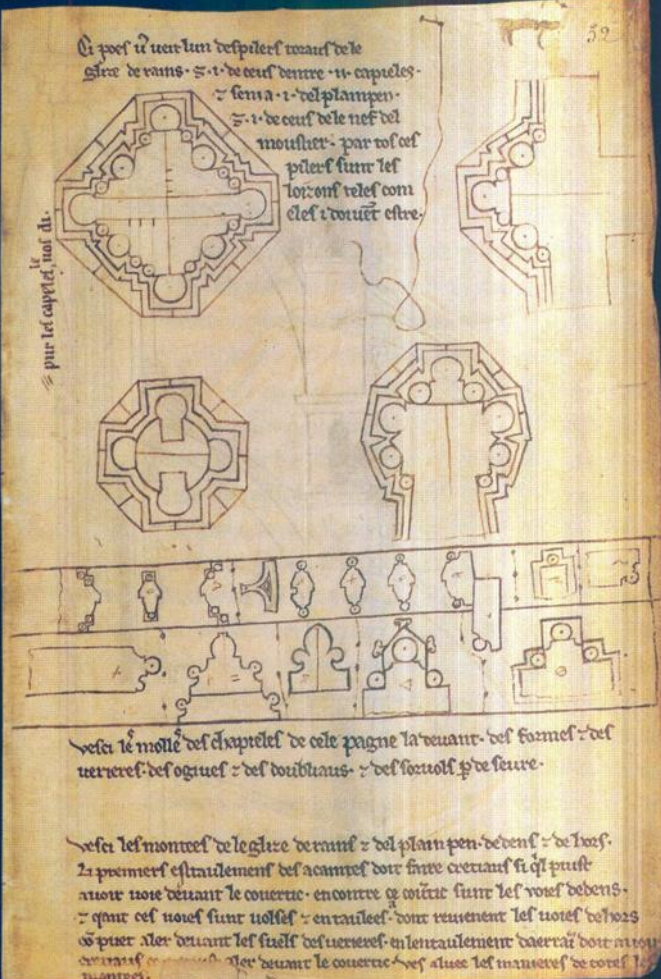 52
Ci poes vͦ veir lun des pilers toraus de le
glize de rains · ⁊ · i · de ceus dentre · ii · capieles ·
⁊ sen i a · i · del plain pen ·
⁊ · i · de ceus de le nef del
moustier · par tos ces
pilers sunt les
loizons teles com
eles i doivēt estre ·
vesci les molles des chapieles de cele pagne la devant · des formes ⁊ des
verieres · des ogives ⁊ des doubliaus · ⁊ des sorvols p̲ de seure ·
vesci les montees de le glize de rains ⁊ del plain pen · dedens ⁊ de hors ·
Li premiers estaulemens des acaintes doit faire cretiaus si ql puist
avoir voie devant le covertic · encontre ce covtic sunt les voies dedens ·
⁊ qant ces voies sunt volses ⁊ entaulees · dont revienent les voies dehors
qͦ puet aler devant les suels des verieres · en lentaulement daerrai doit avoir
cretiaus aler devant le covertic · ves aluec les manieres de totes les
montees ·